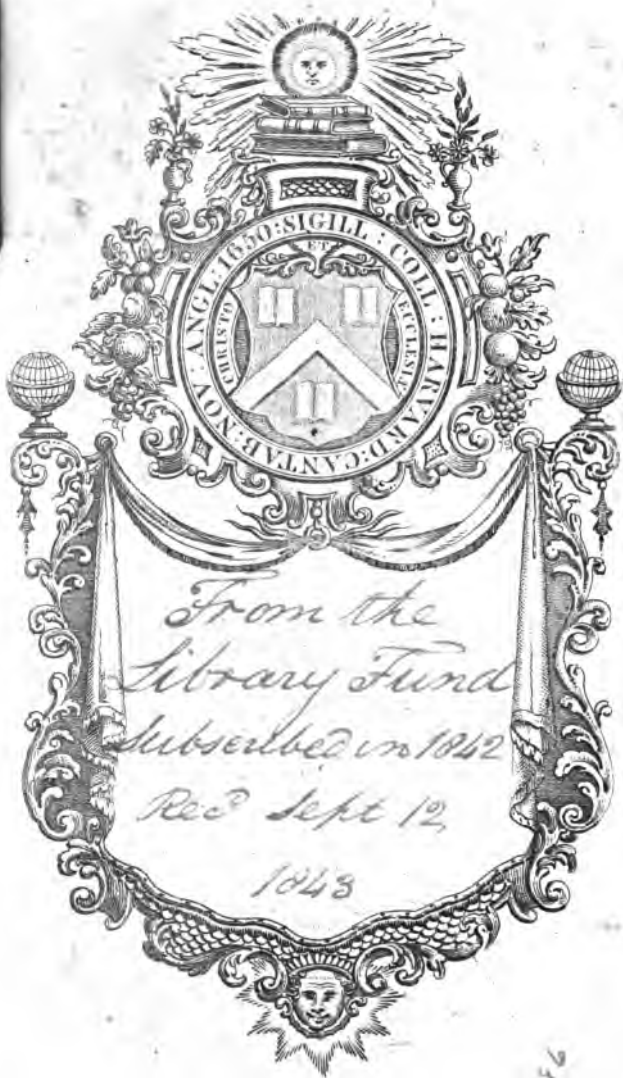 SIGILL : COLL : HARVARD : CANTAB : NOV : ANGL : 1650 :
CHRISTO ET ECCLESIÆ
From the
Library Fund
Subscribed in 1842
Rec'd Sept 12,
1843